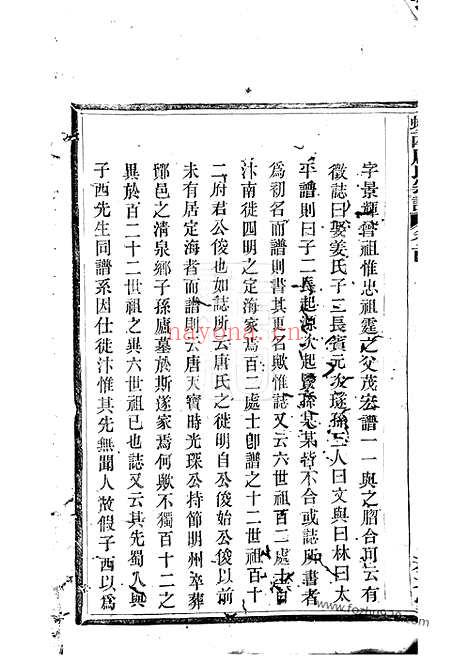 字景輝曾祖惟忠祖霆之父茂宏譜一一與之脗合可云有
徵誌曰娶姜氏子二長賓元次遂孫三人曰文與曰林曰太
平譜則曰子二長起源次起孫某某皆不合或誌所書者
為初名而譜則書其更名歟惟誌又云六世祖百二處士自
汴南徙四明之定海家焉百二處士卽譜之十二世祖百十
二府君公俊也如誌所云唐氏之徙明自公俊始公俊以前
未有居定海者而譜則云唐天寶時光琛公持節明州卒葬
鄮邑之清泉鄉子孫廬墓於斯遂家焉何歟不獨百十二之
異於百二十二世祖之異六世祖已也誌又云其先蜀人與
子西先生同譜系因仕徙汴惟其先無聞人故假子西以為
nayona.cn
www.fozhu920.com